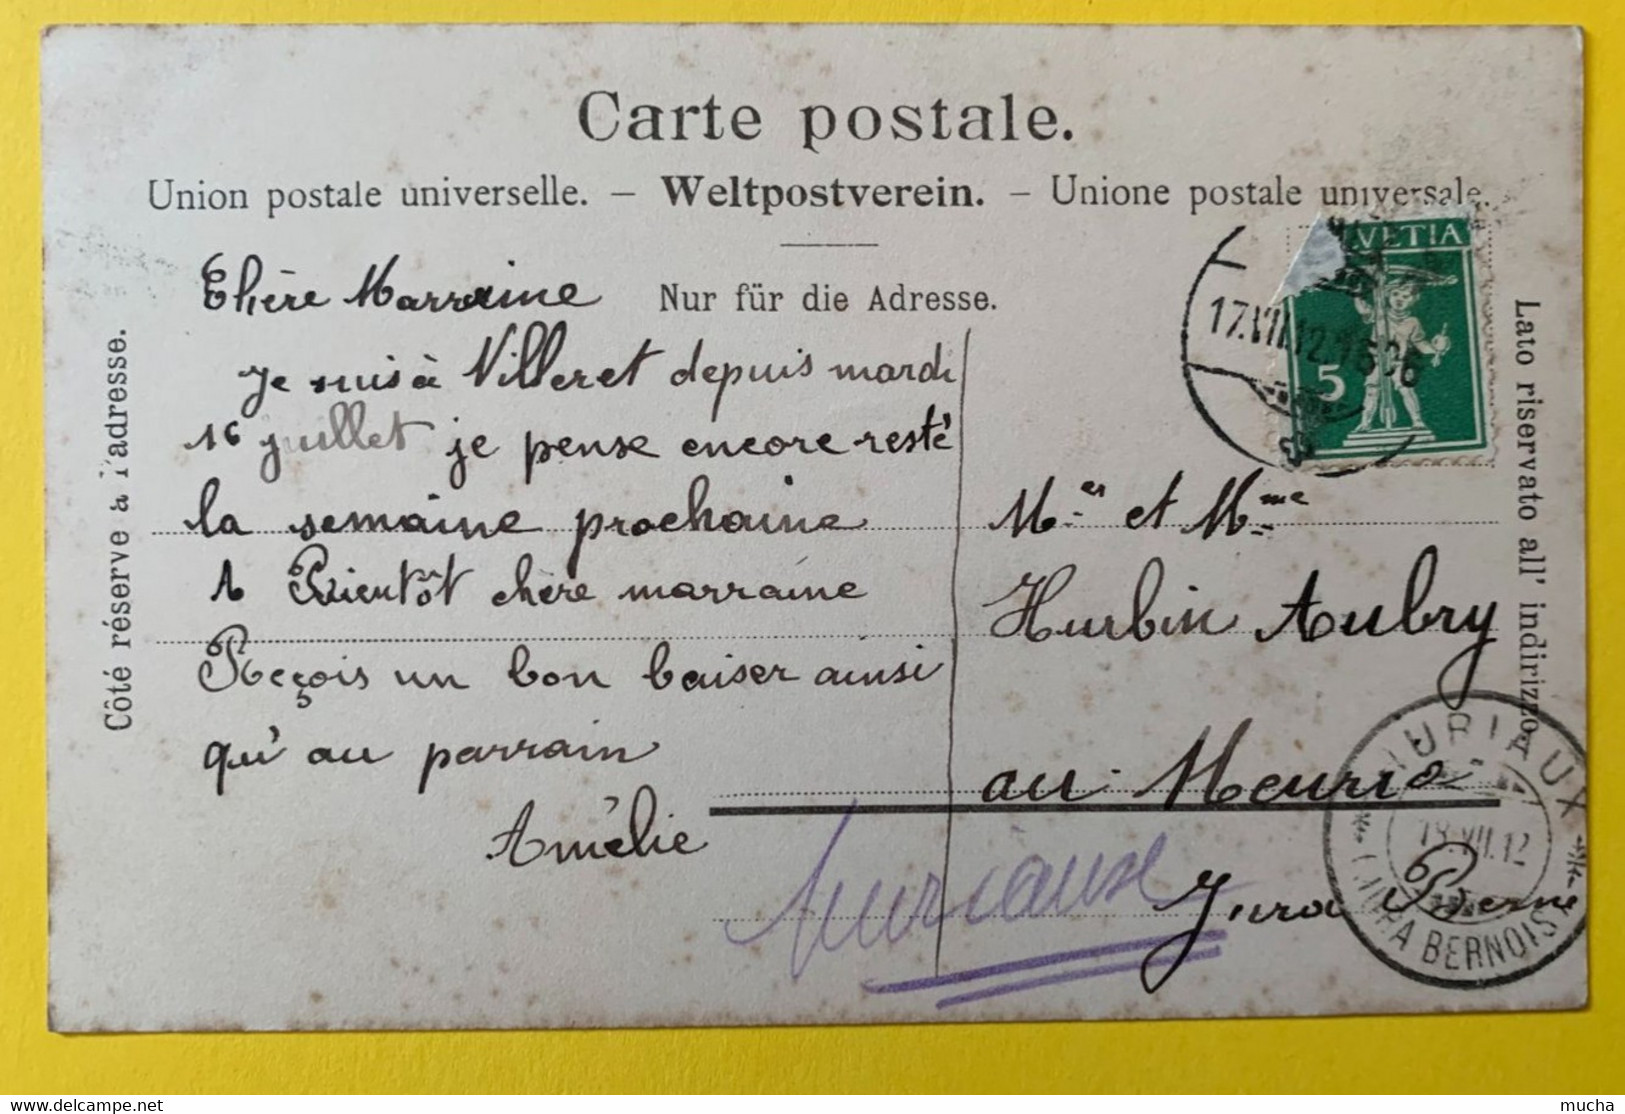 Carte postale.
Union postale universelle. – Weltpostverein. – Unione postale universale.
Nur für die Adresse.
Côté réservé à l'adresse.
Lato riservato all' indirizzo.
Chère Marraine
Je suis à Villeret depuis mardi
16 juillet je pense encore resté
la semaine prochaine
A Bientôt chère marraine
Reçois un bon baiser ainsi
qu'au parrain
Amélie
VETIA
5
17.VII.12
Mer et Mme
Hurbin Aubry
au Meuria
Jura Berne
Muriaux
MURIAUX
18.VII.12
(JURA BERNOIS)
mucha
mucha